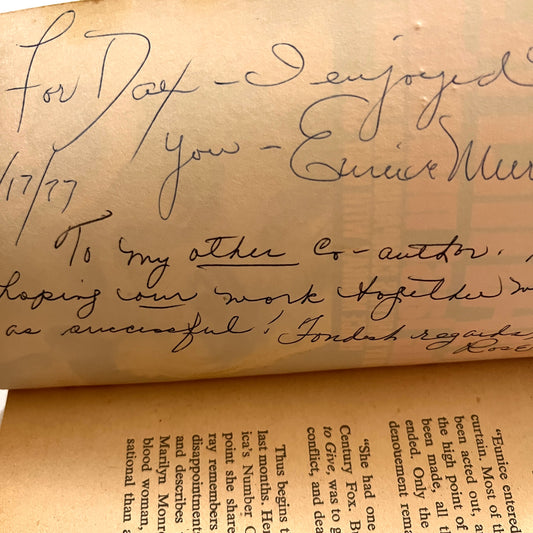 For Dax - I enjoyed
you - Eunice Murr
/17/77
To my other co-author.
hoping our work together
as successful! Fondest regards,
Rose
"Eunice entered
curtain. Most of
been acted out, a
the high point of
been made, all t
ended. Only the
denouement rema
"She had one
Century Fox. B
to Give, was to g
conflict, and dea
Thus begins t
ica's Number O
last months. Her
point she share
ray remembers
disappointments
and describes
Marilyn Monro
blood woman,
sational than a